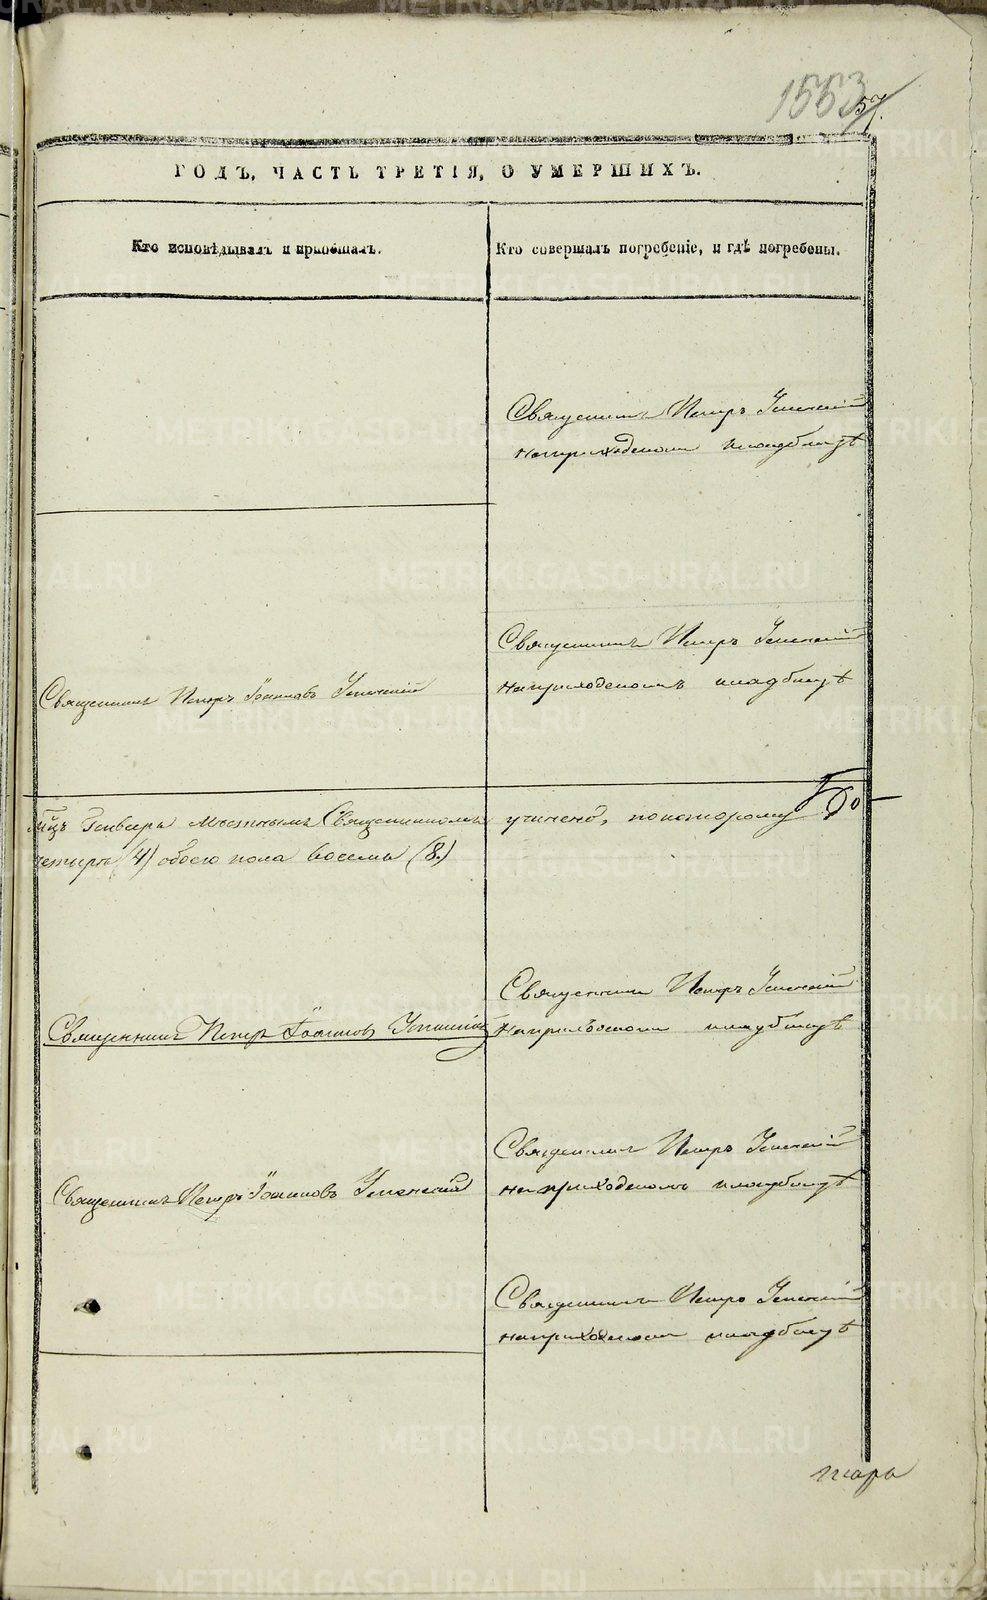 1563
57.
ГОДЪ, ЧАСТЬ ТРЕТІЯ, О УМЕРШИХЪ.
Кто исповѣдывалъ и пріобщалъ.
Кто совершалъ погребеніе, и гдѣ погребены.
Священникъ Петръ Успенскій
на приходскомъ кладбищѣ
Священникъ Петръ Іоанновъ Успенскій
Священникъ Петръ Успенскій
на приходскомъ кладбищѣ
мѣсяцъ Генварь мѣстнымъ Священникомъ учинено, по которому
четыре (4) обоего пола восемь (8.)
Священникъ Петръ Іоанновъ Успенскій
Священникъ Петръ Успенскій
на приходскомъ кладбищѣ
Священникъ Петръ Іоанновъ Успенскій
Священникъ Петръ Успенскій
на приходскомъ кладбищѣ
Священникъ Петръ Успенскій
на приходскомъ кладбищѣ
METRIKI.GASO-URAL.RU